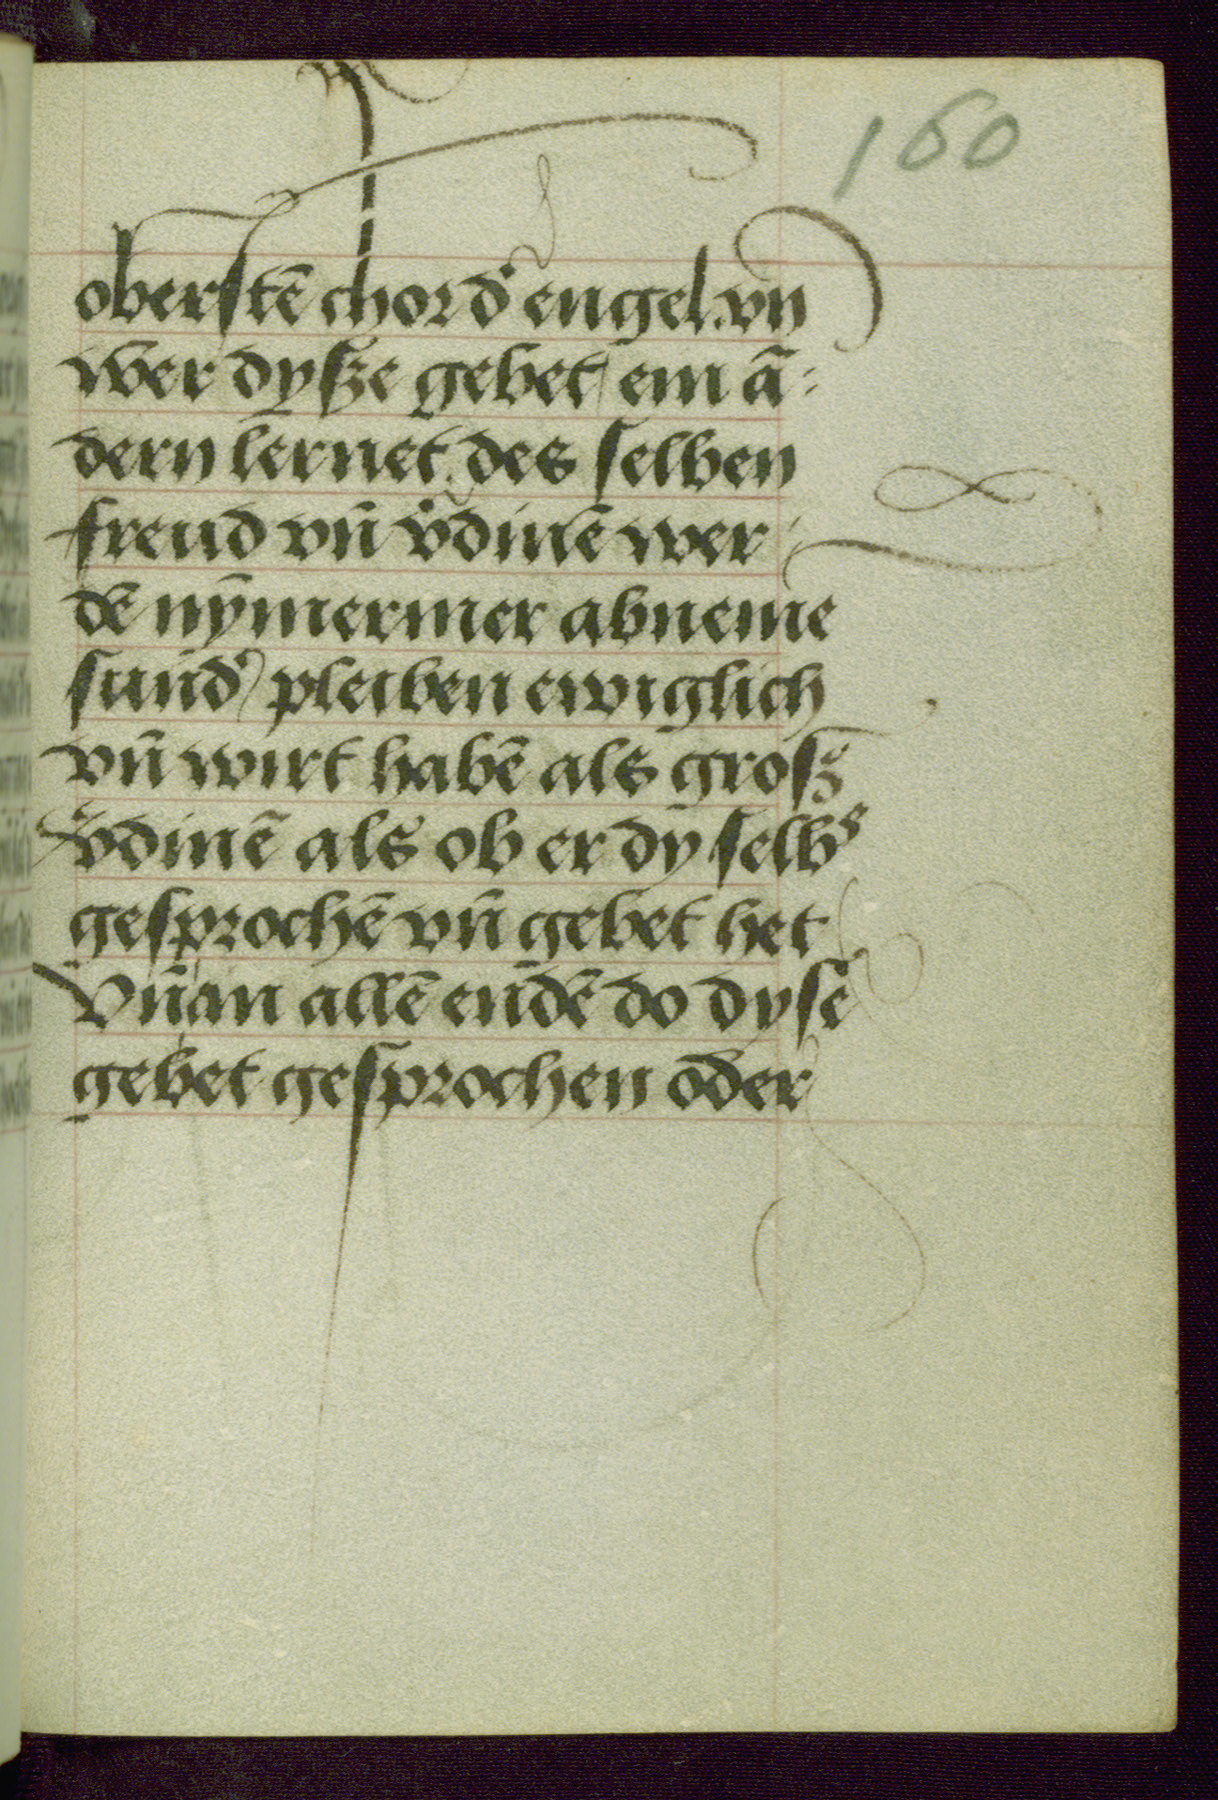 160
oberstē chor d' engel. vn
wer dysze gebet / eim ā=
dern lernet. des selben
freud vn̄ v̊dinē wer
dē nȳmermer abneme
sund' / pleiben ewiglich
vn̄ wirt habē als grosz
v̊dinē als ob er dy selbs
gesprochē vn̄ gebet het
Vn̄ an allē endē do dyse
gebet gesprochen oder